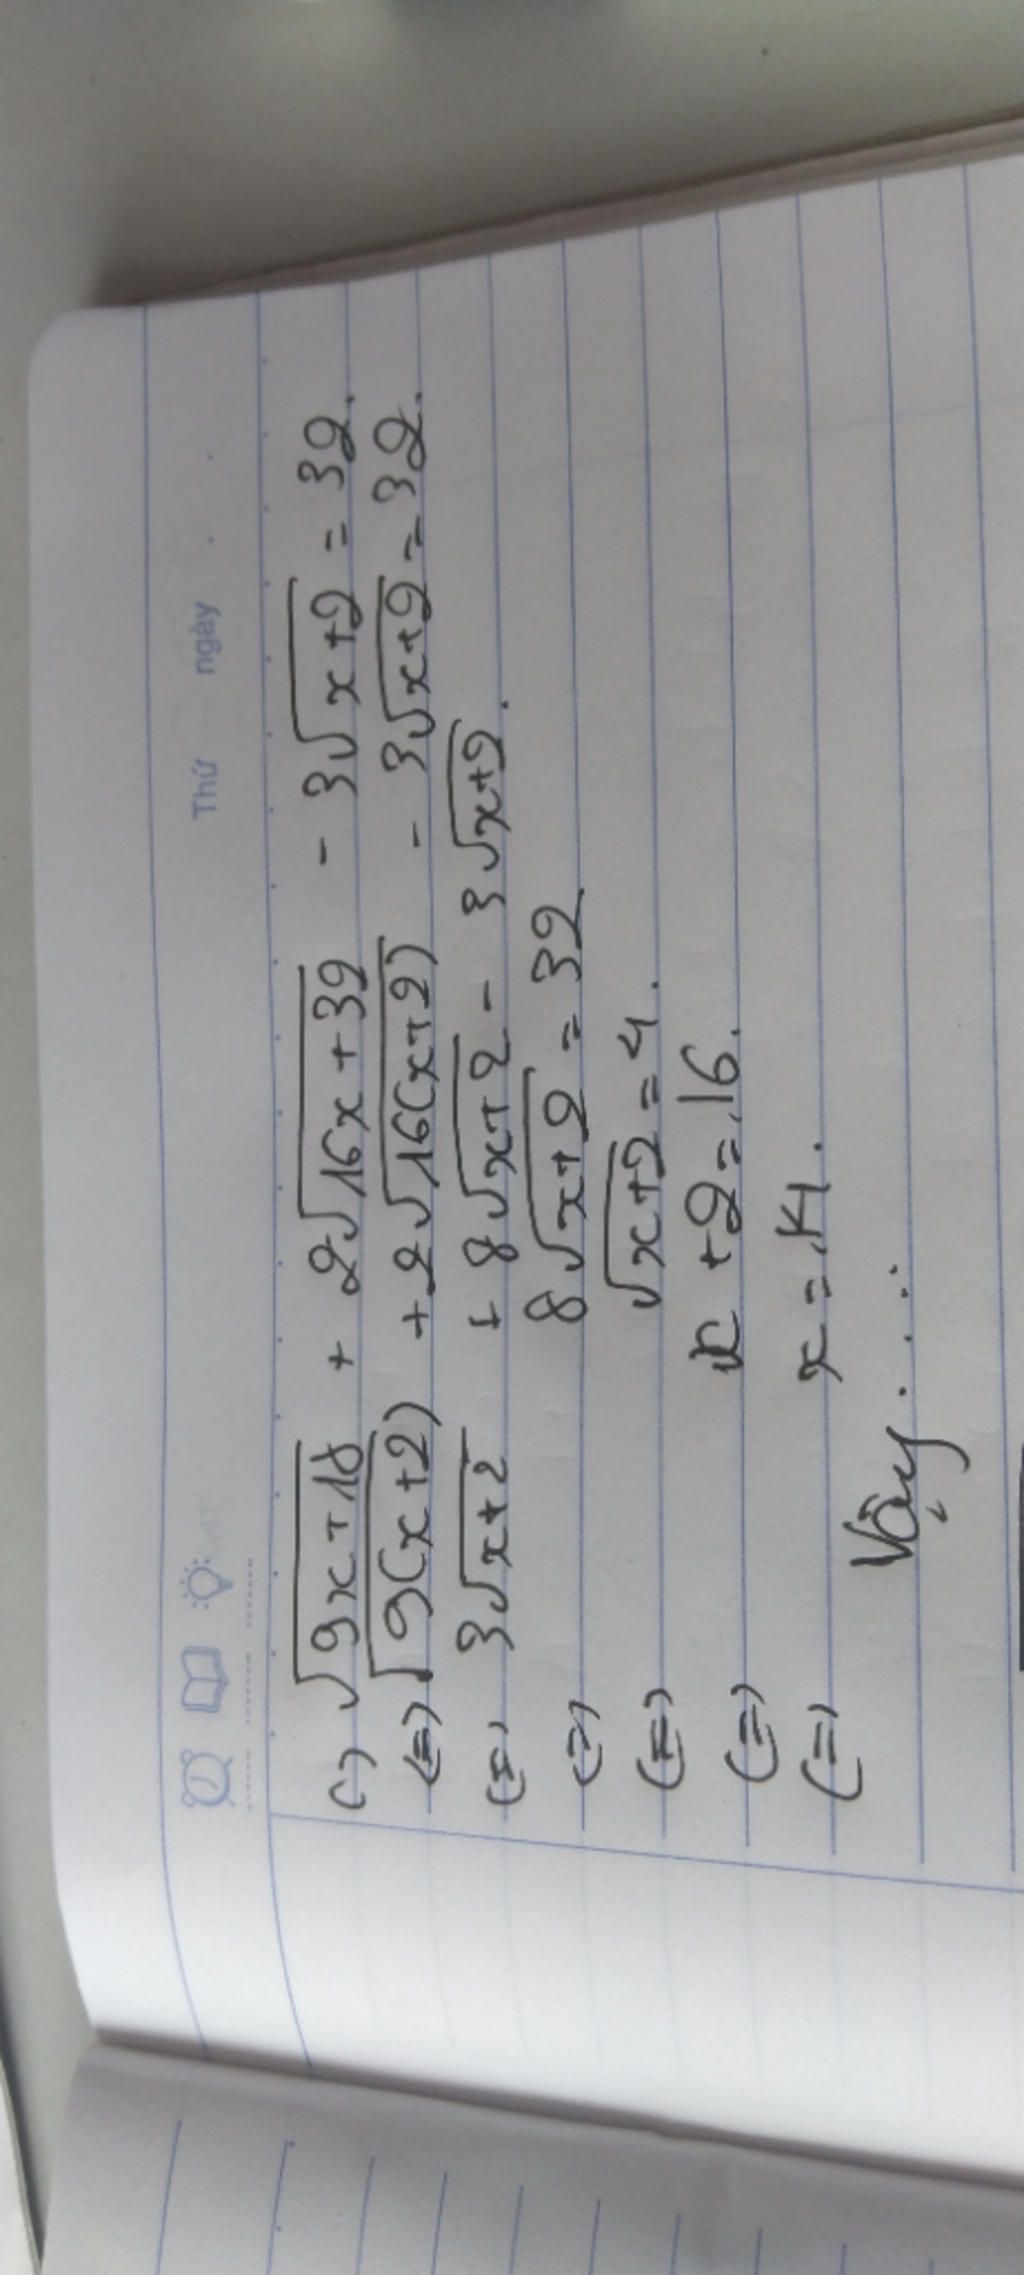 Thứ ngày
c) √(9x+18) + 2√(16x+32) - 3√(x+2) = 32.
(=) √(9(x+2)) + 2√(16(x+2)) - 3√(x+2) = 32.
(=) 3√(x+2) + 8√(x+2) - 3√(x+2).
(=) 8√(x+2) = 32
(=) √(x+2) = 4.
(=) x+2 = 16.
(=) x = 14.
Vậy.....